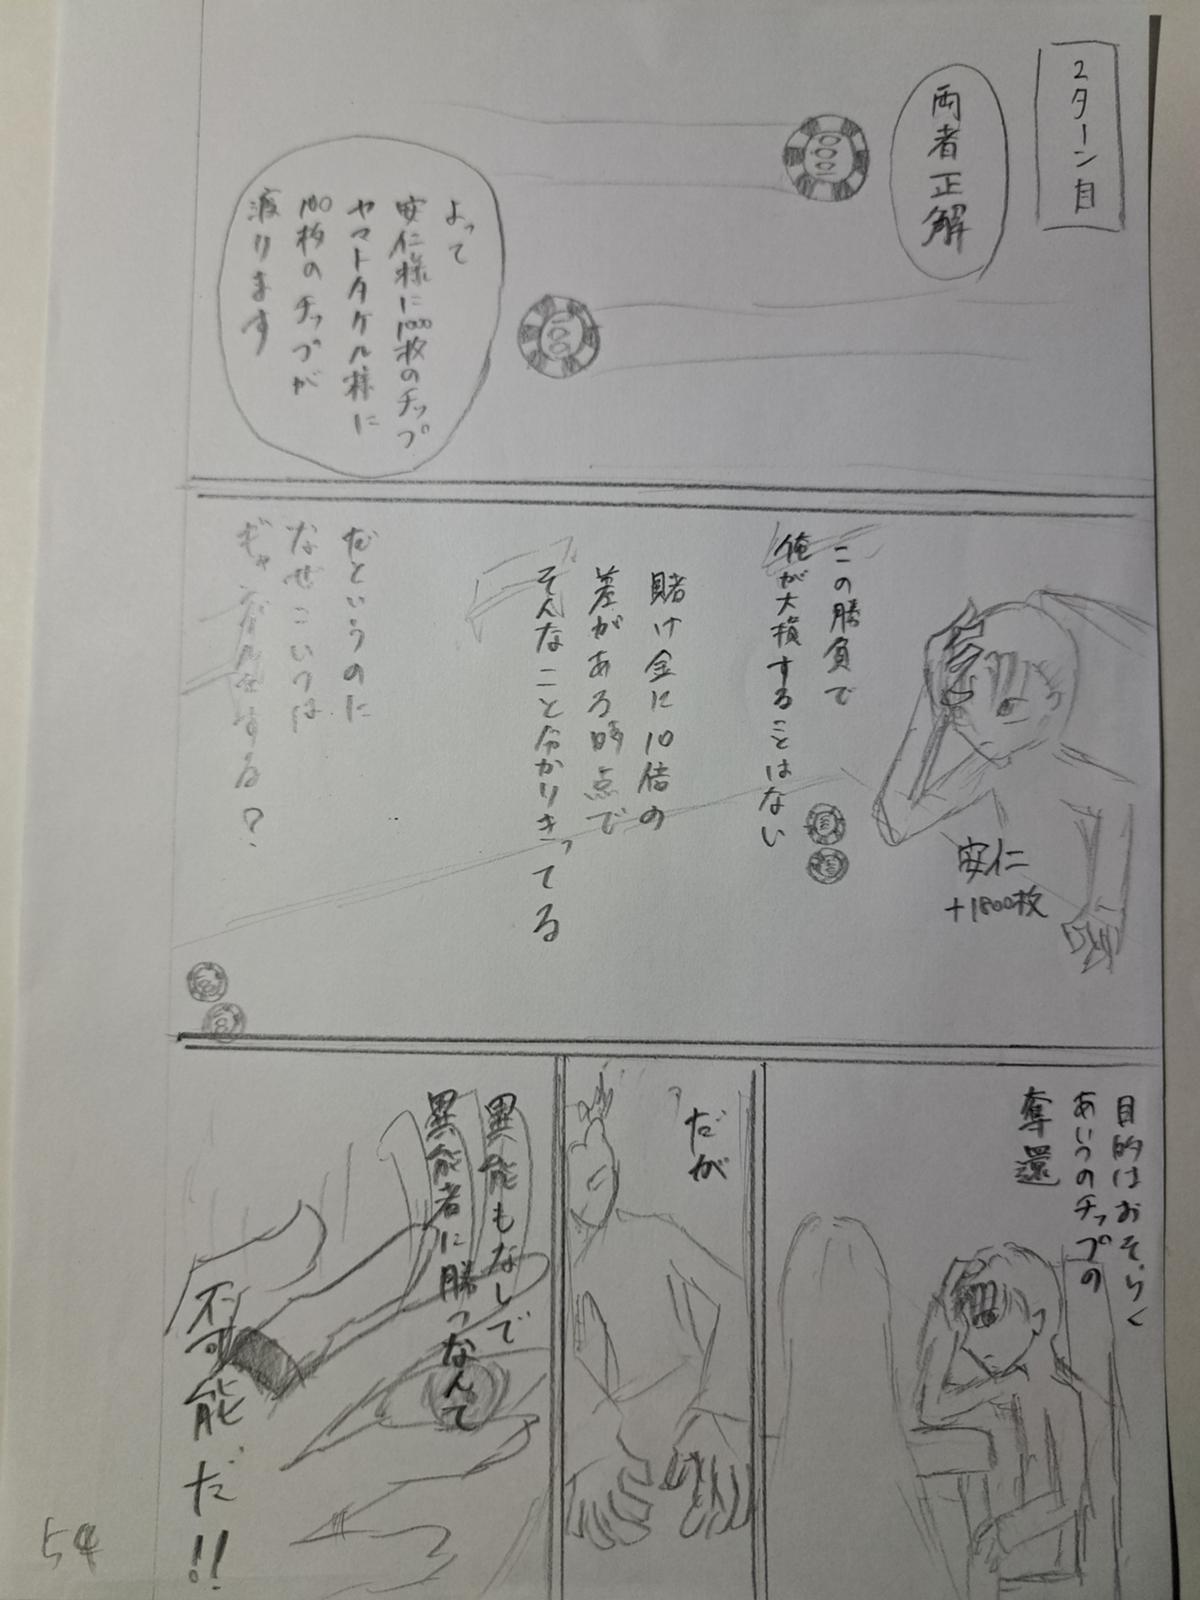 2ターン目
両者正解
1000
100
よって
安仁様に1000枚のチップ
ヤマトタケル様に
100枚のチップが
渡ります
この勝負で
俺が大損することはない
賭け金に10倍の
差がある時点で
そんなこと分かりきってる
だというのに
なぜこいつは
ギャンブルをする?
安仁
+1800枚
目的はおそらく
あいつのチップの
奪還
だが
異能もなしで
異能者に勝つなんて
不可能だ!!
54